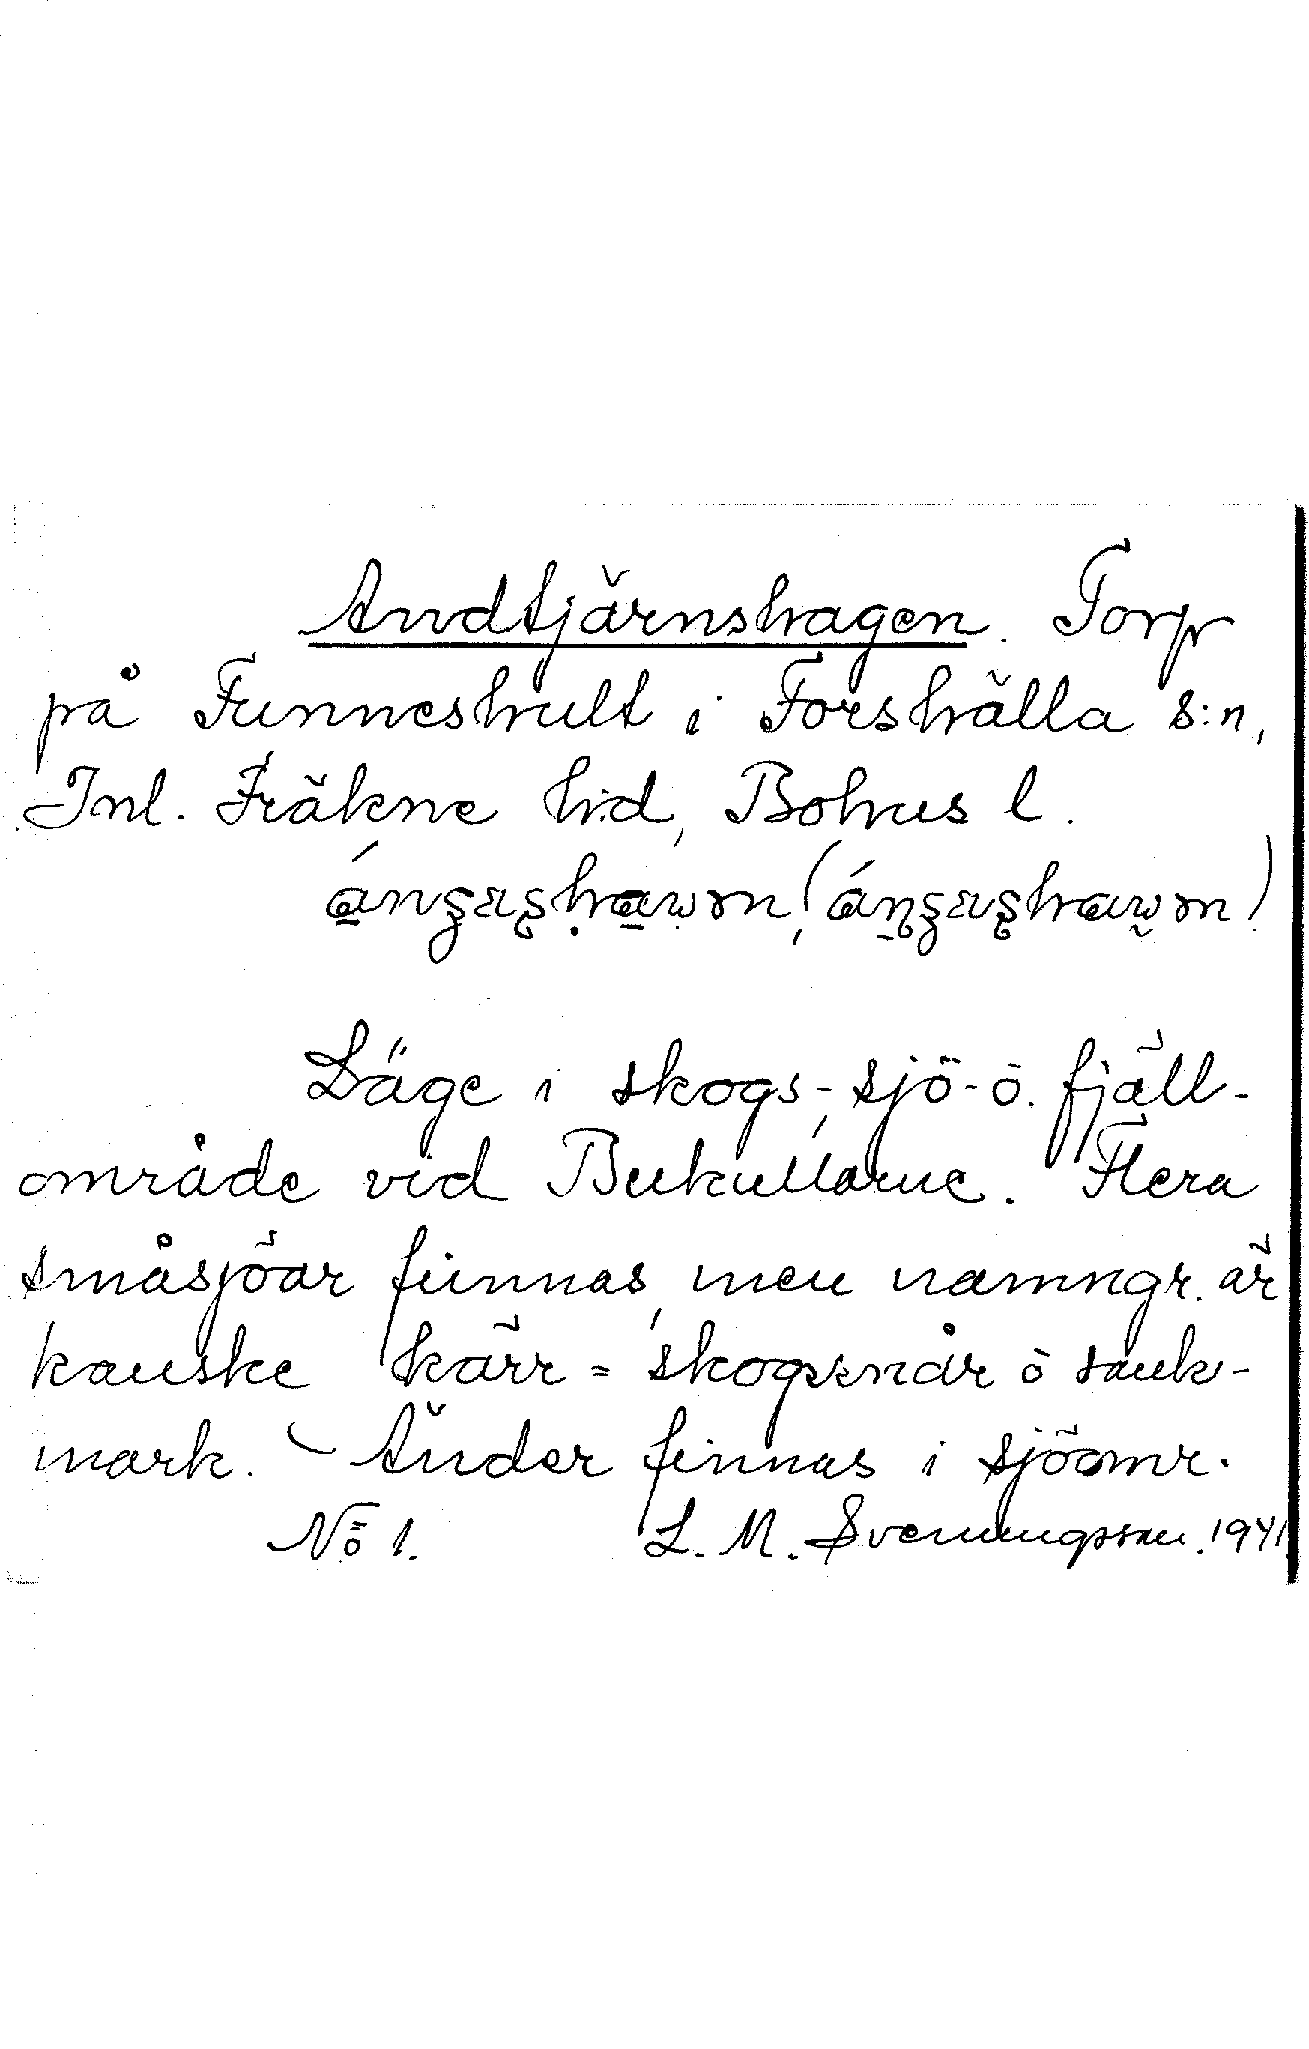 Andtjärnshagen. Torp
på Funneshult i Forshälla s:n,
Inl. Fräkne h:d, Bohus l.
Läge i skogs-, sjö- o. fjäll-
område vid Bukullarne. Flera
småsjöar finnas, men namngr. är
kanske kärr = skogssnår o sank-
mark. – Änder finnas i sjöomr.
No 1. L. M. Svenungsson. 1941.